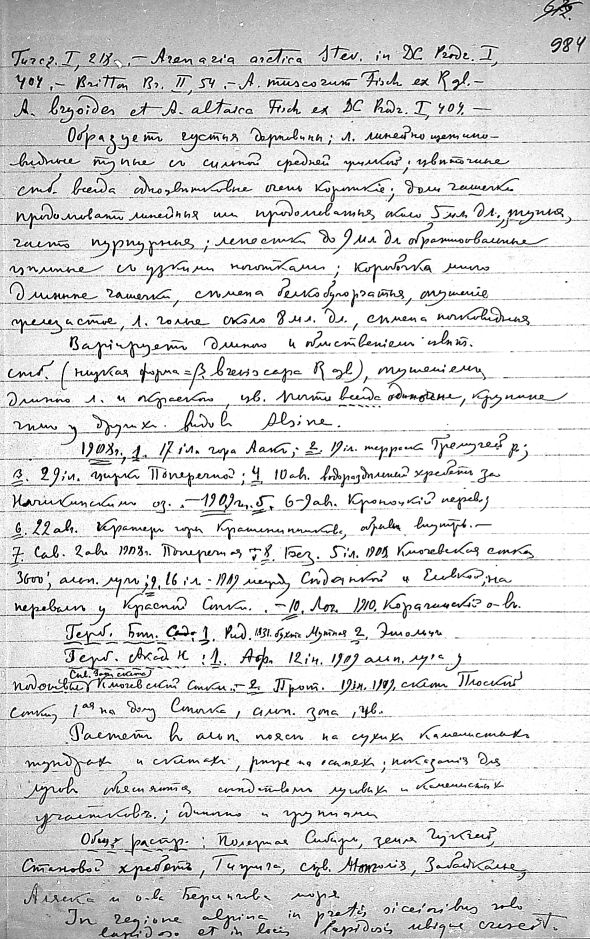 984
Turcz. I, 218. — Arenaria arctica Stev. in DC Prodr. I,
404. — Britton Br. II, 54. — A. muscorum Fisch ex Rgl. —
A. bryoides et A. altaica Fisch ex DC Prodr. I, 409. —
Образуетъ густыя дерновины; л. линейно щетино-
видные тупые съ сильной средней жилкой; цвѣточные
стб. всегда одноцвѣтковые очень короткіе; доли чашечки
продолговато линейныя или продолговатыя около 5 мл дл., тупыя,
часто пурпурныя; лепестки до 9 мл дл обратноовальные
цѣльные съ узкими ноготками; коробочка много
длиннѣе чашечки, сѣмена бугорчатыя, опушеніе
железистое, л. голые около 8 мл. дл., сѣмена почковидныя
Варіируетъ длиною и облиствѣніемъ цвѣт.
стб. (низкая форма = β. breviscapa Rgl), опушеніемъ
длиною л. и окраскою, цв. почти всегда одиночные, крупнѣе
чѣмъ у другихъ видовъ Alsine.
1908 г. 1. 17 іл. гора; 2. 19 іл. терраса р;
3. 29 іл. цирки Поперечной; 4. 10 ав. водораздѣльный хребетъ за
Начикинскимъ оз. — 1909 г. 5. 6-9 ав. Кроноцкій перев;
6. 22 ав. Кратеръ горы Крашенинникова, обрывы внутр. —
7. Сав. 2 ав. 1908 г. Поперечная — 8. Без. 5 іл. 1909 Ключевская сопка
3600', альп. луга; 9. 16 іл. 1909 между и Еловкой, на
перевалѣ у Красной Сопки. — 10. 1910. Карагинскій о-въ.
Герб. Бот. Сада: 1. Рид. 1831. бухта 2. Эшольцъ
Герб. Акад Н: 1. 12 ін. 1909 альп. луга у
подошвы Ключевской сопки. — 2. Прот. 1909, склоны Плоской
Сопки, на долу альп. зона, цв.
Растетъ въ альп. поясѣ на сухихъ каменистыхъ
тундрахъ и скатахъ, рѣже на осыпяхъ; показанія для
луговъ объясняются сосѣдствомъ луговыхъ и каменистыхъ
участковъ; одиночно и группами
Общ. растр.: Полярная Сибирь, земля Чукчей,
Становой хребетъ, Гижига, сѣв. Монголія, Забайкалье,
Аляска и о-ва Берингова моря
In regione alpina in pratis siccioribus solo
lapidoso et in locis lapidosis ubique crescit.